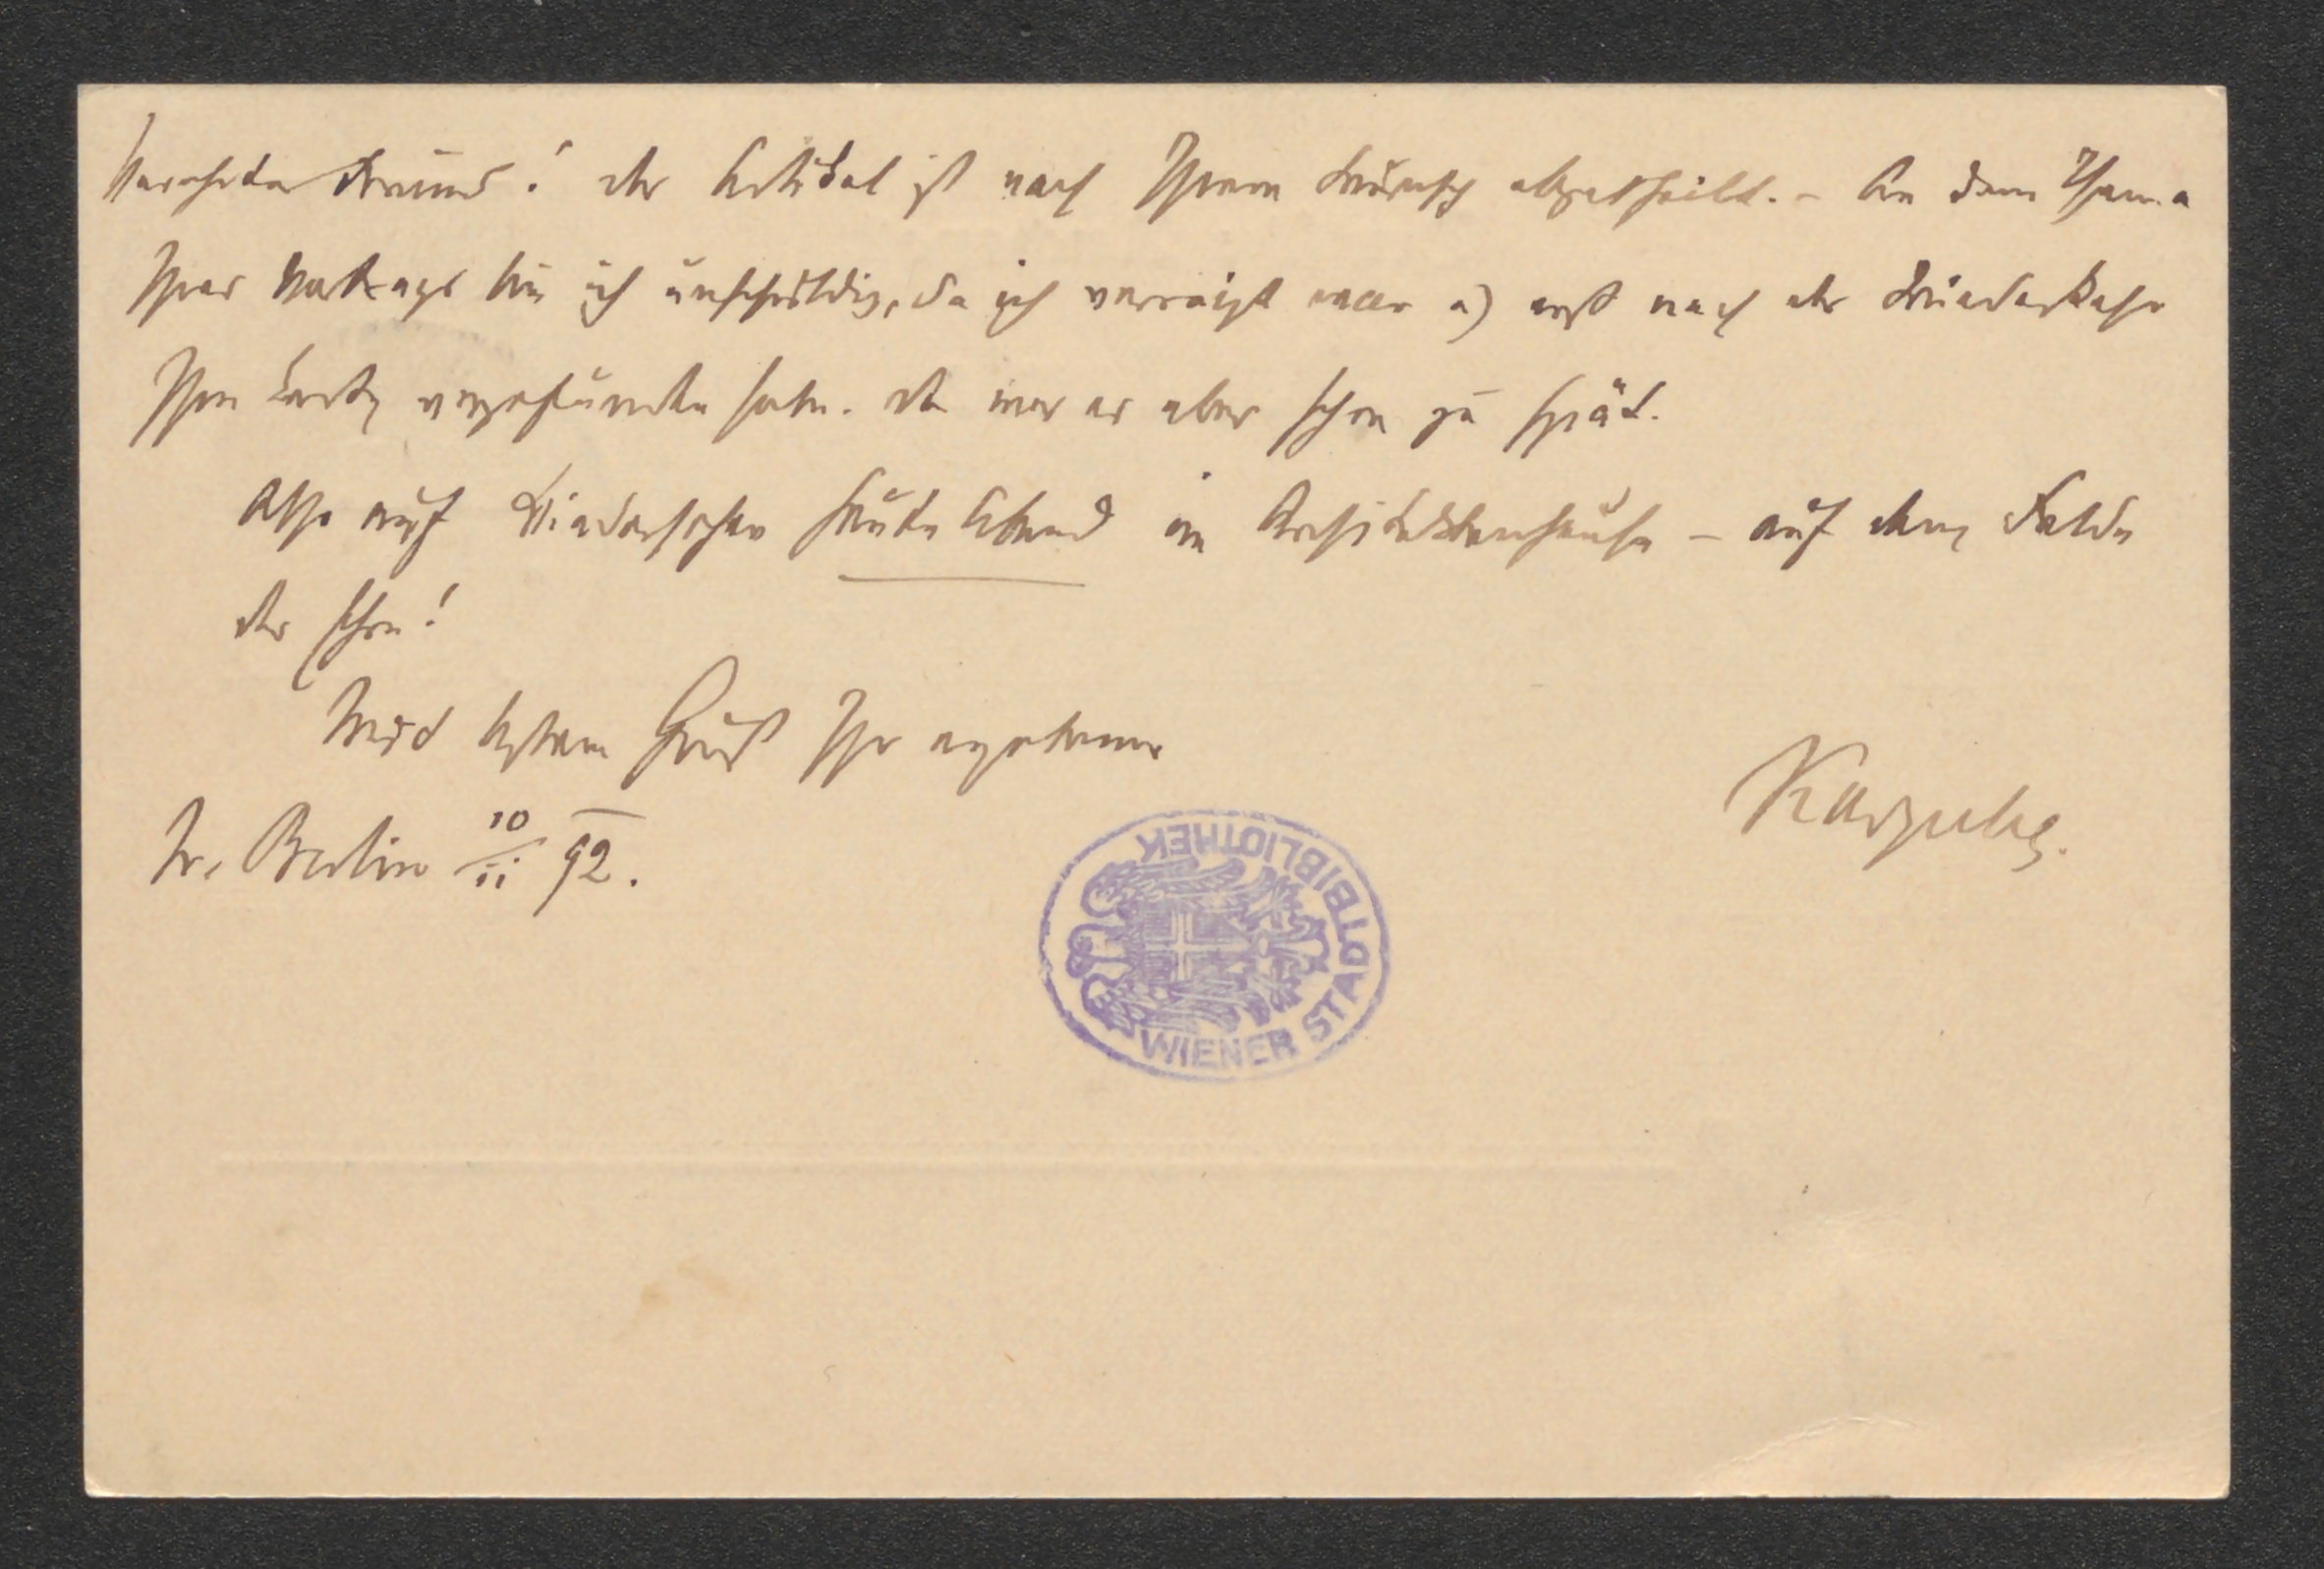 Verehrter Freund! Der Artikel ist nach Ihrem Wunsch abgetheilt. – An dem Thema
Ihres Vortrags bin ich unschuldig, da ich verreist war u) erst nach der Wiederkehr
Ihre Karte vorgefunden habe. Da war es aber schon zu spät.
Also auf Wiedersehen heute Abend im Architektenhause – auf dem Felde
der Ehre!
Mit bestem Gruß Ihr ergebener
Karpeles.
Berlin 10/ii 92.
WIENER STADTBIBLIOTHEK